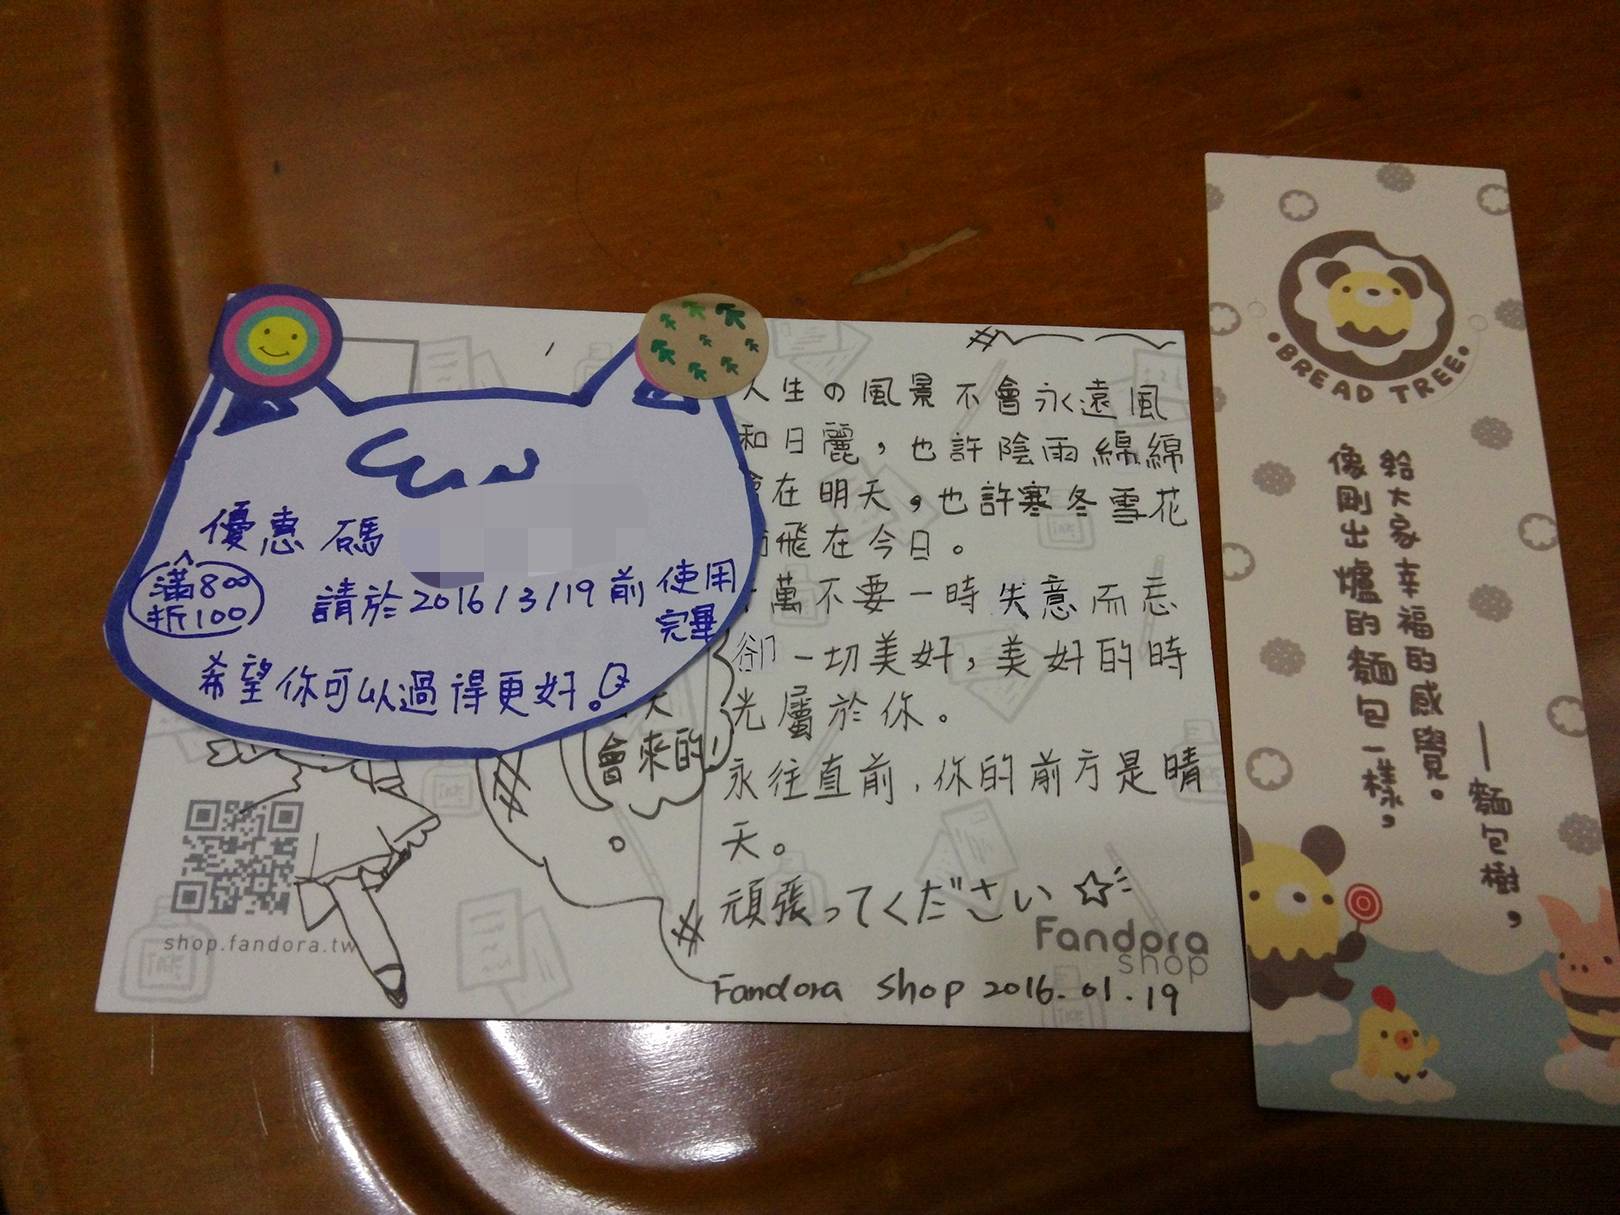 優惠碼
滿800
折100
請於2016/3/19前使用
完畢
希望你可以過得更好。
人生の風景不會永遠風
和日麗，也許陰雨綿綿
會在明天，也許寒冬雪花
飛在今日。
萬不要一時失意而忘
卻一切美好，美好的時
光屬於你。
永往直前，你的前方是晴
天。
頑張ってください☆
Fandora
shop
Fandora shop 2016.01.19
天
會來的!
shop.fandora.tw
BREAD TREE
像剛出爐的麵包一樣，
給大家幸福的感覺。
—麵包樹，